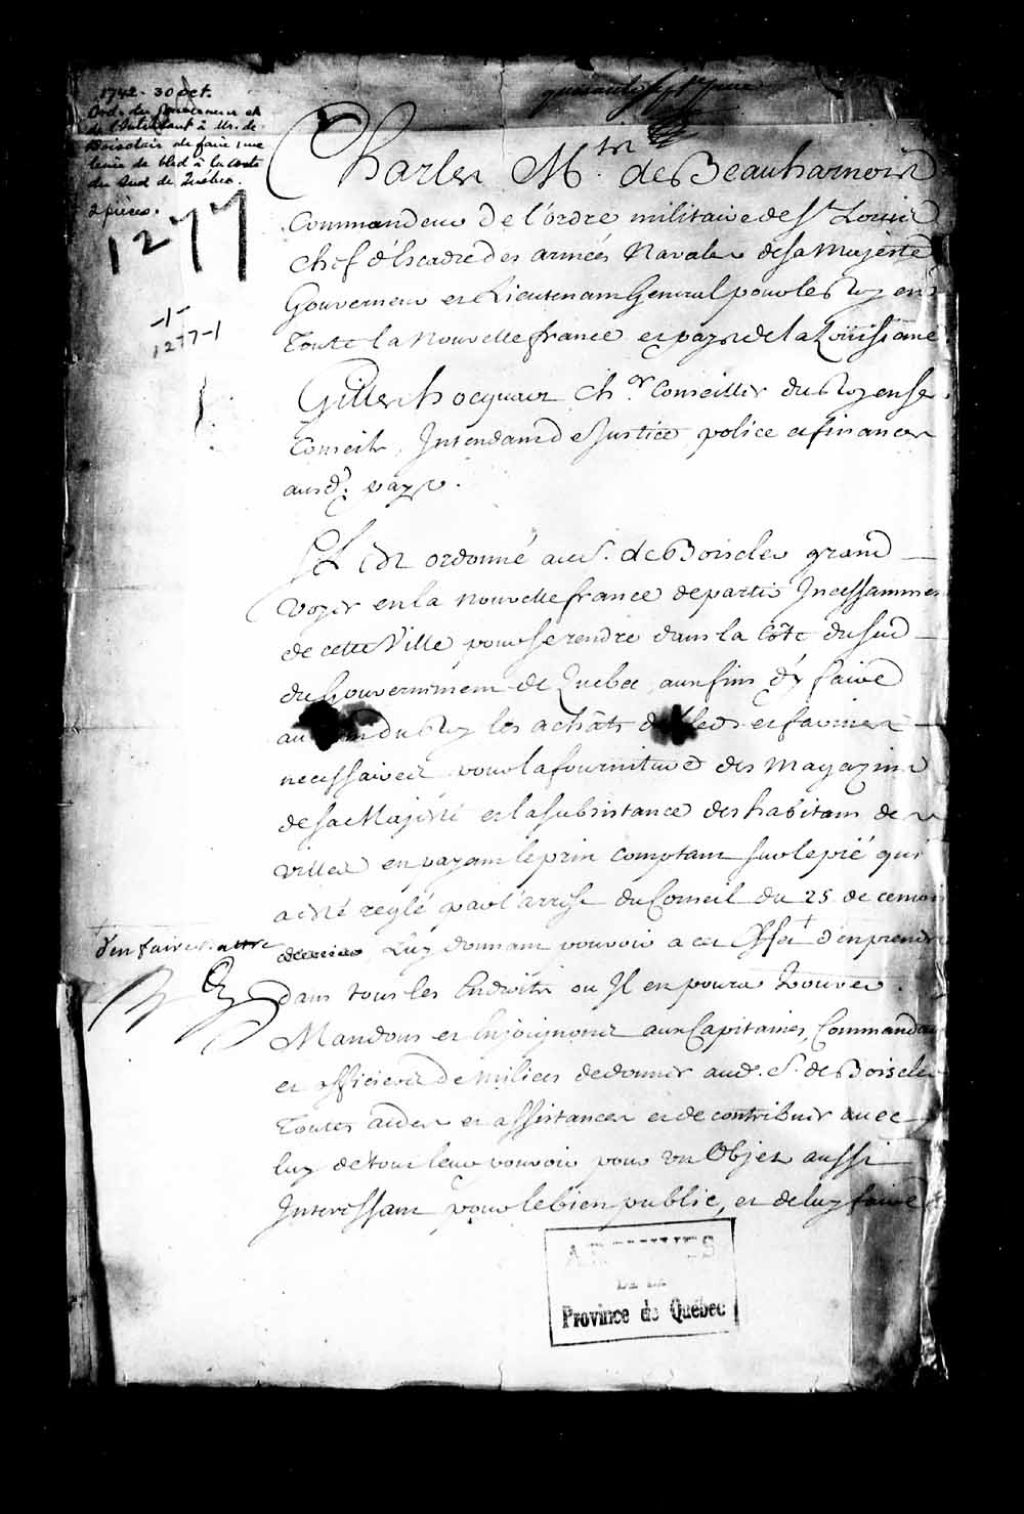 1742 - 30 oct.
Ord. du Gouverneur et
de l'Intendant à Mr. de
Boisclair de faire une
levée de bled à la Coste
du Sud de Québec.
2 pièces.
1277
-1-
1277-1
quarante septieme
Charles M.is de Beauharnois
Commandeur de l'ordre militaire de St Louis
chef d'Escadre des armées Navales de sa Majesté
Gouverneur et Lieutenant General pour le Roy en
Toute la Nouvelle france et pays de la Louissiane.
Gilles hocquart Ch.er Conseiller du Roy en ses
Conseils, Intendant de Justice police et finances
aud. pays.
Il Est ordonné au S. de Boiscler grand
Voyer en la Nouvelle france de partir Incessamment
de cette Ville pour se rendre dans la Côte du sud
du Gouvernement de Quebec, aux fins d'y faire
au du Roy les achâts de bleds et farines
necessaires pour la fourniture des Magazins
de sa Majesté et la subsistance des habitans des
villes en payant le prix comptant sur le pié qui
a esté reglé par l'arrest du Conseil du 25 de ce mois
Luy donnant pouvoir a cet Effet + d'en prendre
+
d'en faire
dans tous les Endroits ou Il en poura trouver.
Mandons et Enjoignons aux Capitaines, Commandans
et officiers de milices de donner aud. S. de Boiscler
Toutes aides et assistances et de contribuer avec
luy de tout leur pouvoir pour un Objet aussi
Interessant pour le bien public, et de luy faire
ARCHIVES
DE LA
Province de Québec